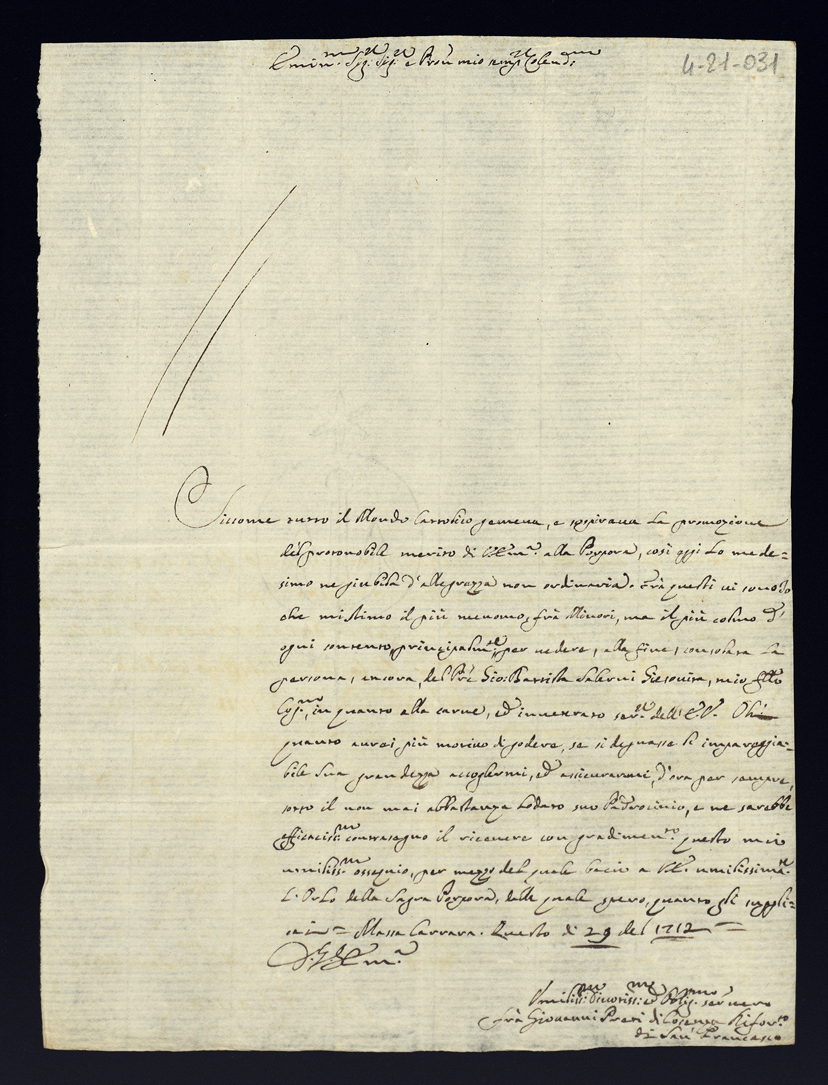 Emin.mo Sig.r Sig.r e Pron mio sempre Colend.mo
4-21-031
Siccome tutto il Mondo Cattolico gemeva, e sospirava la promozione
del protonobile merito di VEm.a alla Porpora, così oggi lo mede=
simo ne giubila d'allegrezza non ordinaria. Frà questi vi sono Io
che mi stimo il più menomo, frà Minori, ma il più colmo d'
ogni contento, principalm.te per vedere, alla fine, consolata la
persona, ancora, del Pre Gio: Battista Salerni Giesuita, mio
Cog.no, in quanto alla carne, ed inveterato ser.re dell'E.V. Oh
quanto avrei più motivo di godere, se si degnasse l'impareggia=
bile sua grandezza accogliermi, ed assicurarmi, d'ora per sempre,
sotto il non mai abbastanza lodato suo Padrocinio, e ne sarebbe
efficaciss.mo contrasegno il ricevere con gradimen.to questo mio
umiliss.mo ossequio, per mezzo del quale bacio a VE. umilissima.te
della Sagra Porpora, dalle quale spero, quanto gli suppli=
Massa Carrara. Questo dì 29 del 1712
D. V. Em.a
Umiliss.mo Divotiss.mo ed Oblig.mo ser vero
Frà Giovanni Preti di Cosenza Rifor.to
di San Francesco